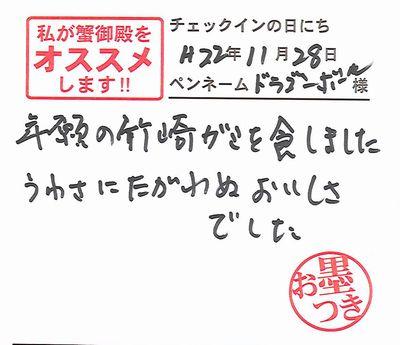 私が蟹御殿を
オススメ
します!!
チェックインの日にち
H22年11月28日
ペンネーム ドラゴンボール 様
年願の竹崎がにを食しました
うわさにたがわぬおいしさ
でした
お墨つき